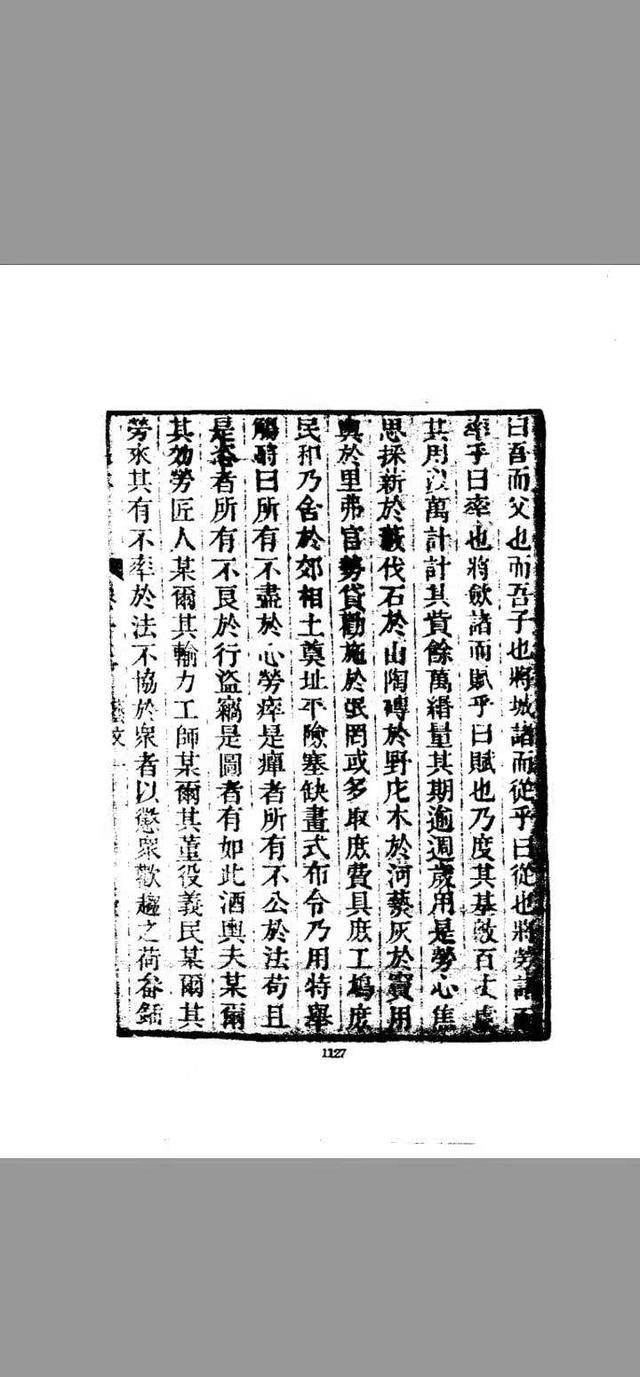 曰吾而父也而吾子也將城諸而從乎曰從也將勞諸而
率乎曰率也將歛諸而賦乎曰賦也乃度其基數百丈慮
其用以萬計計其貲餘萬緡量其期逾週歲用是勞心焦
思採薪於藪伐石於山陶磚於野庀木於河爇灰於竇用
輿於里弗官勢貸勸施於張罔或多取庶費具庶工鳩庶
民和乃舍於郊相土奠址平險塞缺畫式布令乃用特舉
觴酹曰所有不盡於心勞瘁是癉者所有不公於法苟且
是者所有不良於行盜竊是圖者有如此酒輿夫某爾
其効勞匠人某爾其輸力工師某爾其董役義民某爾其
勞來其有不率於法不協於衆者以懲衆歡趨之荷畚鍤
藝文
1127